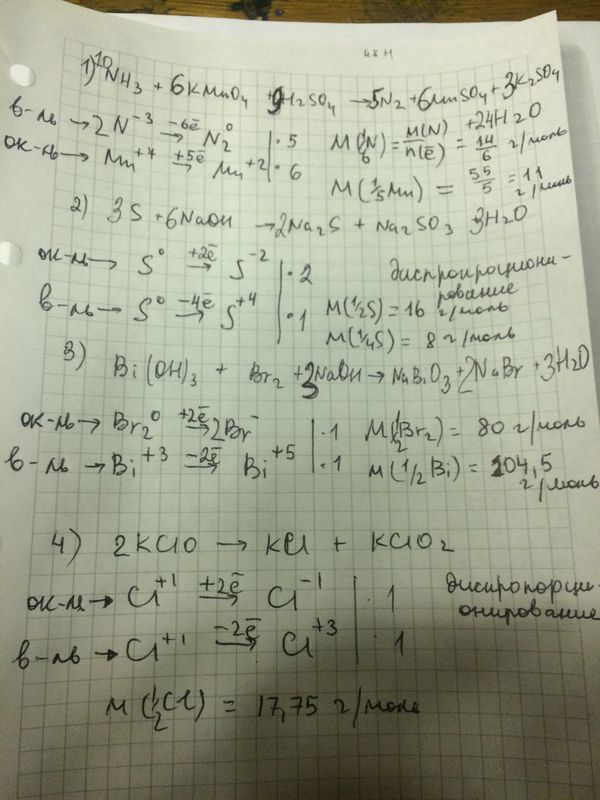 1) 10NH₃ + 6KMnO₄ + 9H₂SO₄ → 5N₂ + 6MnSO₄ + 3K₂SO₄
+24H₂O
в-ль → 2N⁻³ —-6ē→ N₂⁰ | ·5 M(N/6) = M(N)/n(ē) = 14/6 г/моль
ок-ль → Mn⁺⁴ —+5ē→ Mn⁺² | ·6 M(1/5Mn) = 55/5 = 11 г/моль
2) 3S + 6NaOH → 2Na₂S + Na₂SO₃ 3H₂O
ок-ль → S⁰ —+2ē→ S⁻² | ·2 диспропорциони-
рование
в-ль → S⁰ —-4ē→ S⁺⁴ | ·1 M(1/2S) = 16 г/моль
M(1/4S) = 8 г/моль
3) Bi(OH)₃ + Br₂ + 3NaOH → NaBiO₃ + 2NaBr + 3H₂O
ок-ль → Br₂⁰ —+2ē→ 2Br⁻ | ·1 M(1/2Br₂) = 80 г/моль
в-ль → Bi⁺³ —-2ē→ Bi⁺⁵ | ·1 M(1/2 Bi) = 104,5 г/моль
4) 2KClO → KCl + KClO₂
ок-ль → Cl⁺¹ —+2ē→ Cl⁻¹ | ·1 диспропорци-
онирование
в-ль → Cl⁺¹ —-2ē→ Cl⁺³ | ·1
M(1/2Cl) = 17,75 г/моль